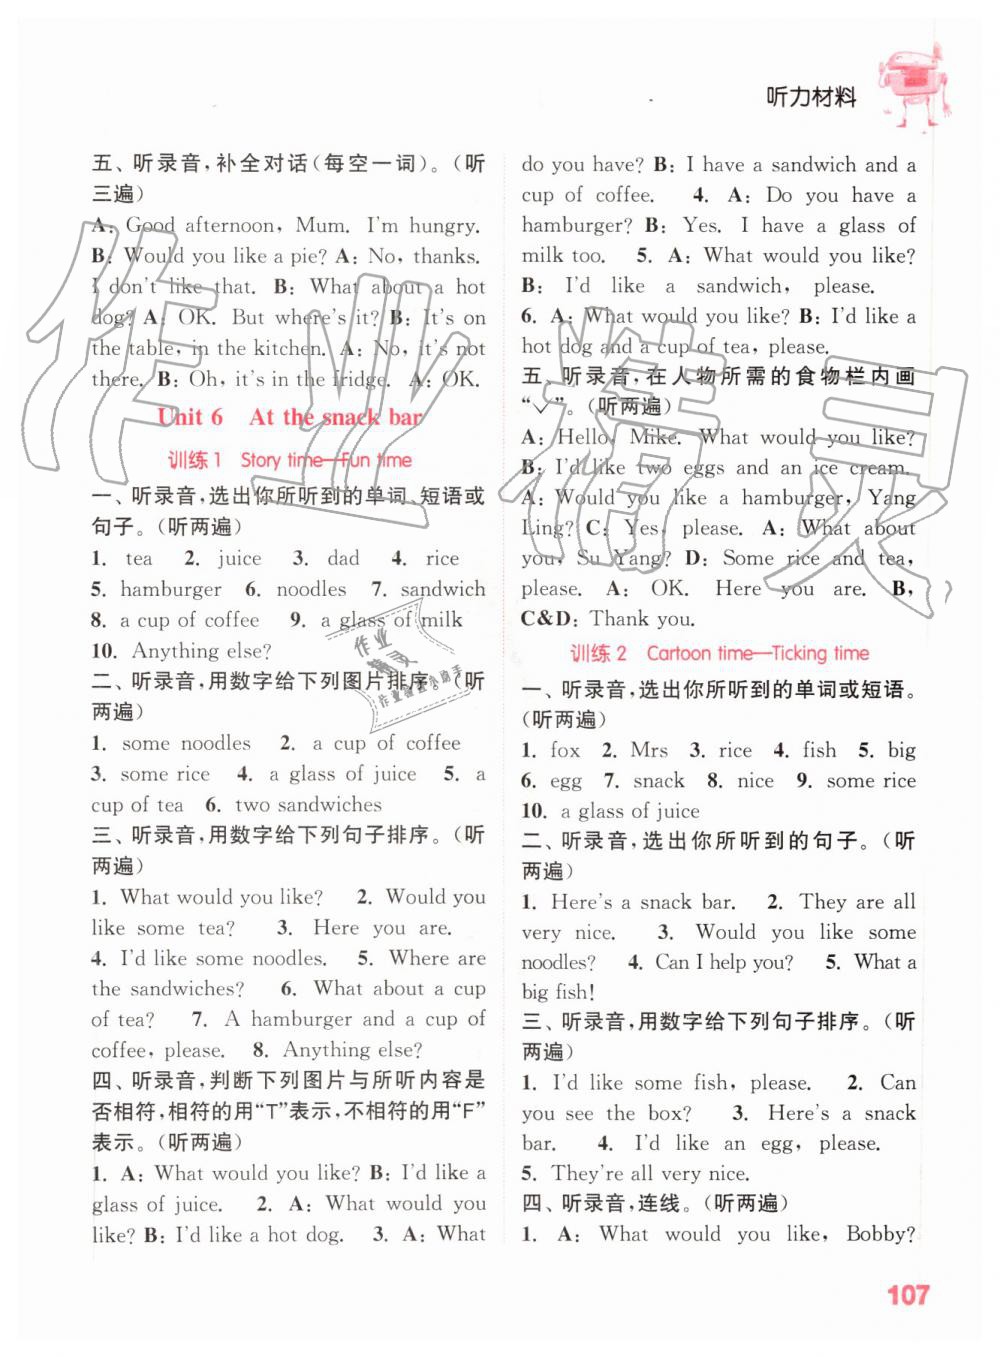 听力材料
五、听录音，补全对话（每空一词）。（听
三遍）
A：Good afternoon, Mum. I'm hungry.
B：Would you like a pie? A：No, thanks.
I don't like that. B：What about a hot
dog? A：OK. But where's it? B：It's on
the table, in the kitchen. A：No, it's not
there. B：Oh, it's in the fridge. A：OK.
Unit 6 At the snack bar
训练1 Story time—Fun time
一、听录音，选出你所听到的单词、短语或
句子。（听两遍）
1. tea 2. juice 3. dad 4. rice
5. hamburger 6. noodles 7. sandwich
8. a cup of coffee 9. a glass of milk
10. Anything else?
二、听录音，用数字给下列图片排序。（听
两遍）
1. some noodles 2. a cup of coffee
3. some rice 4. a glass of juice 5. a
cup of tea 6. two sandwiches
三、听录音，用数字给下列句子排序。（听
两遍）
1. What would you like? 2. Would you
like some tea? 3. Here you are.
4. I'd like some noodles. 5. Where are
the sandwiches? 6. What about a cup
of tea? 7. A hamburger and a cup of
coffee, please. 8. Anything else?
四、听录音，判断下列图片与所听内容是
否相符，相符的用“T”表示，不相符的用“F”
表示。（听两遍）
1. A：What would you like? B：I'd like a
glass of juice. 2. A：What would you
like? B：I'd like a hot dog. 3. A：What
do you have? B：I have a sandwich and a
cup of coffee. 4. A：Do you have a
hamburger? B：Yes. I have a glass of
milk too. 5. A：What would you like?
B：I'd like a sandwich, please.
6. A：What would you like? B：I'd like a
hot dog and a cup of tea, please.
五、听录音，在人物所需的食物栏内画
“√”。（听两遍）
A：Hello, Mike. What would you like?
B：I'd like two eggs and an ice cream.
A：Would you like a hamburger, Yang
Ling? C：Yes, please. A：What about
you, Su Yang? D：Some rice and tea,
please. A：OK. Here you are. B,
C&D：Thank you.
训练2 Cartoon time—Ticking time
一、听录音，选出你所听到的单词或短语。
（听两遍）
1. fox 2. Mrs 3. rice 4. fish 5. big
6. egg 7. snack 8. nice 9. some rice
10. a glass of juice
二、听录音，选出你所听到的句子。（听
两遍）
1. Here's a snack bar. 2. They are all
very nice. 3. Would you like some
noodles? 4. Can I help you? 5. What a
big fish!
三、听录音，用数字给下列句子排序。（听
两遍）
1. I'd like some fish, please. 2. Can
you see the box? 3. Here's a snack
bar. 4. I'd like an egg, please.
5. They're all very nice.
四、听录音，连线。（听两遍）
1. A：What would you like, Bobby?
107
作业精灵
作业
精灵